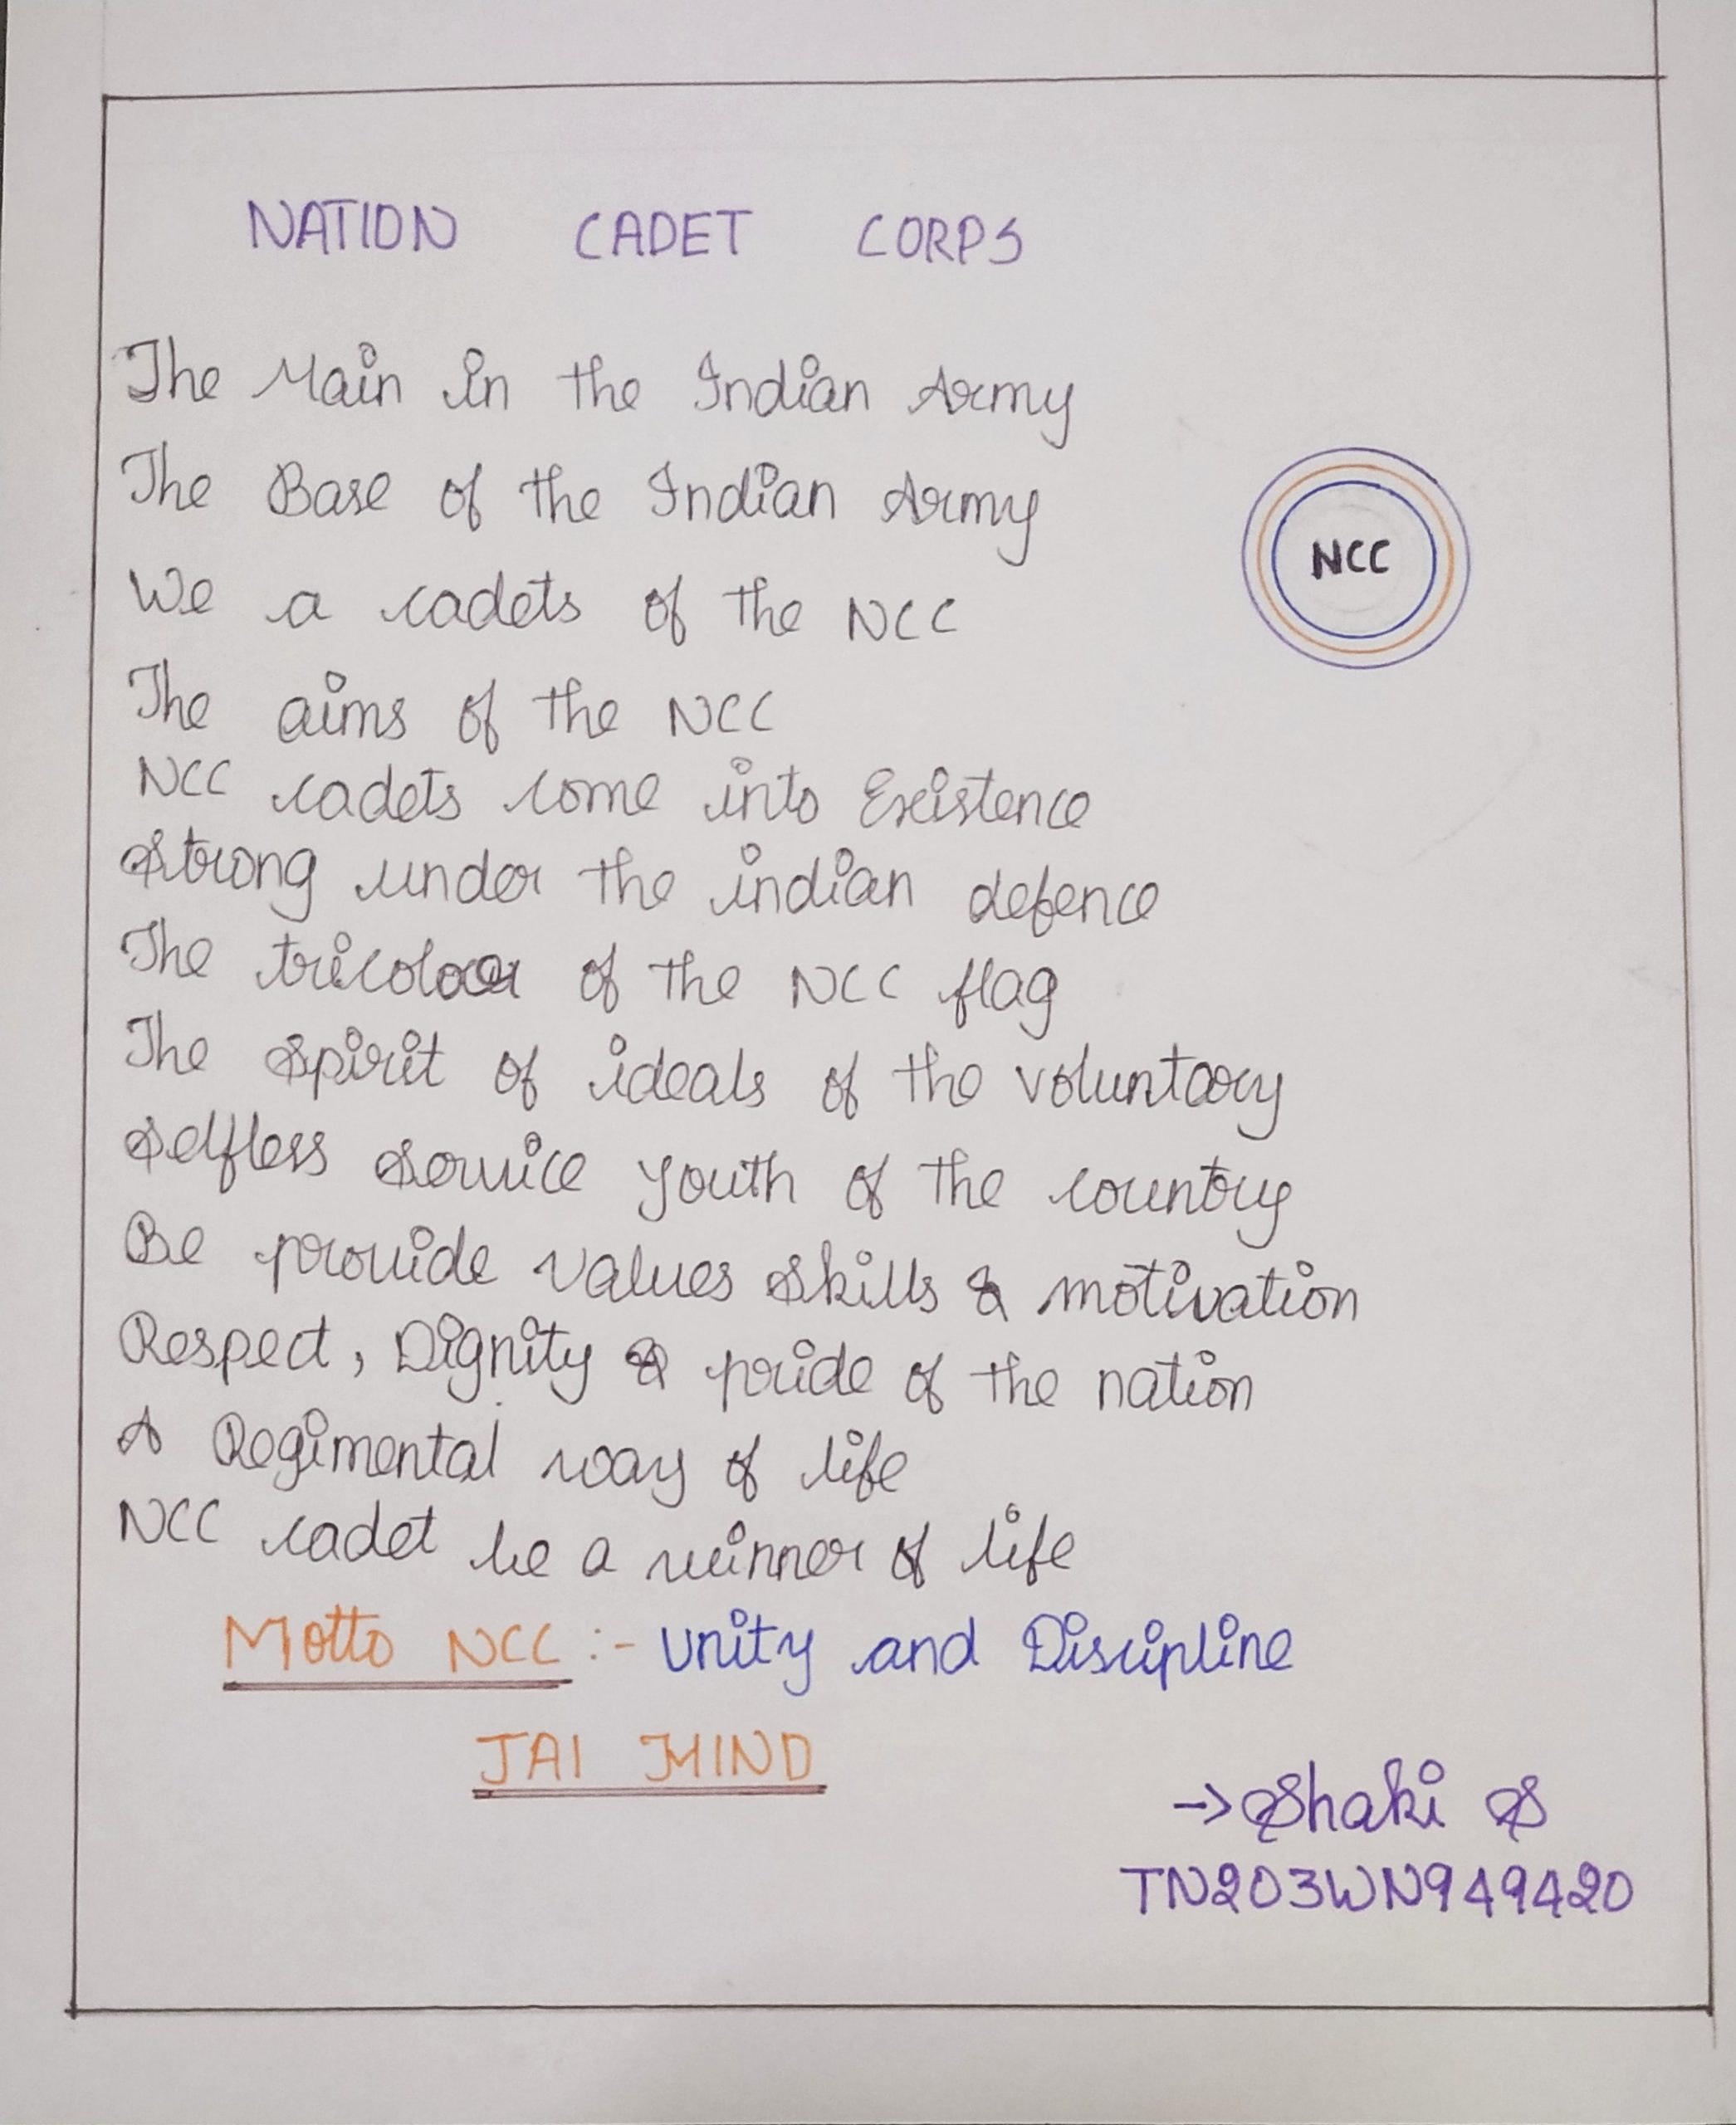 NATION CADET CORPS
The Main in the Indian Army
The Base of the Indian Army
NCC
We a cadets of the NCC
The aims of the NCC
NCC cadets come into Existence
Strong under the indian defence
The tricolour of the NCC flag
The Spirit of ideals of the voluntary
Selfless Service youth of the country
Be provide values Skills & motivation
Respect, Dignity & pride of the nation
A Regimental way of life
NCC cadet be a winner of life
Motto NCC :- Unity and Discipline
JAI HIND
→ Shaki S
TN203WN949420